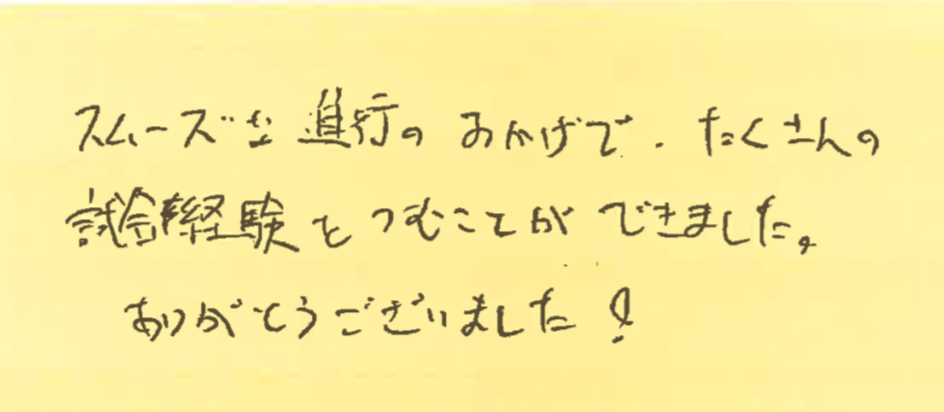 スムーズな進行のおかげで、たくさんの
試合経験をつむことができました。
ありがとうございました!